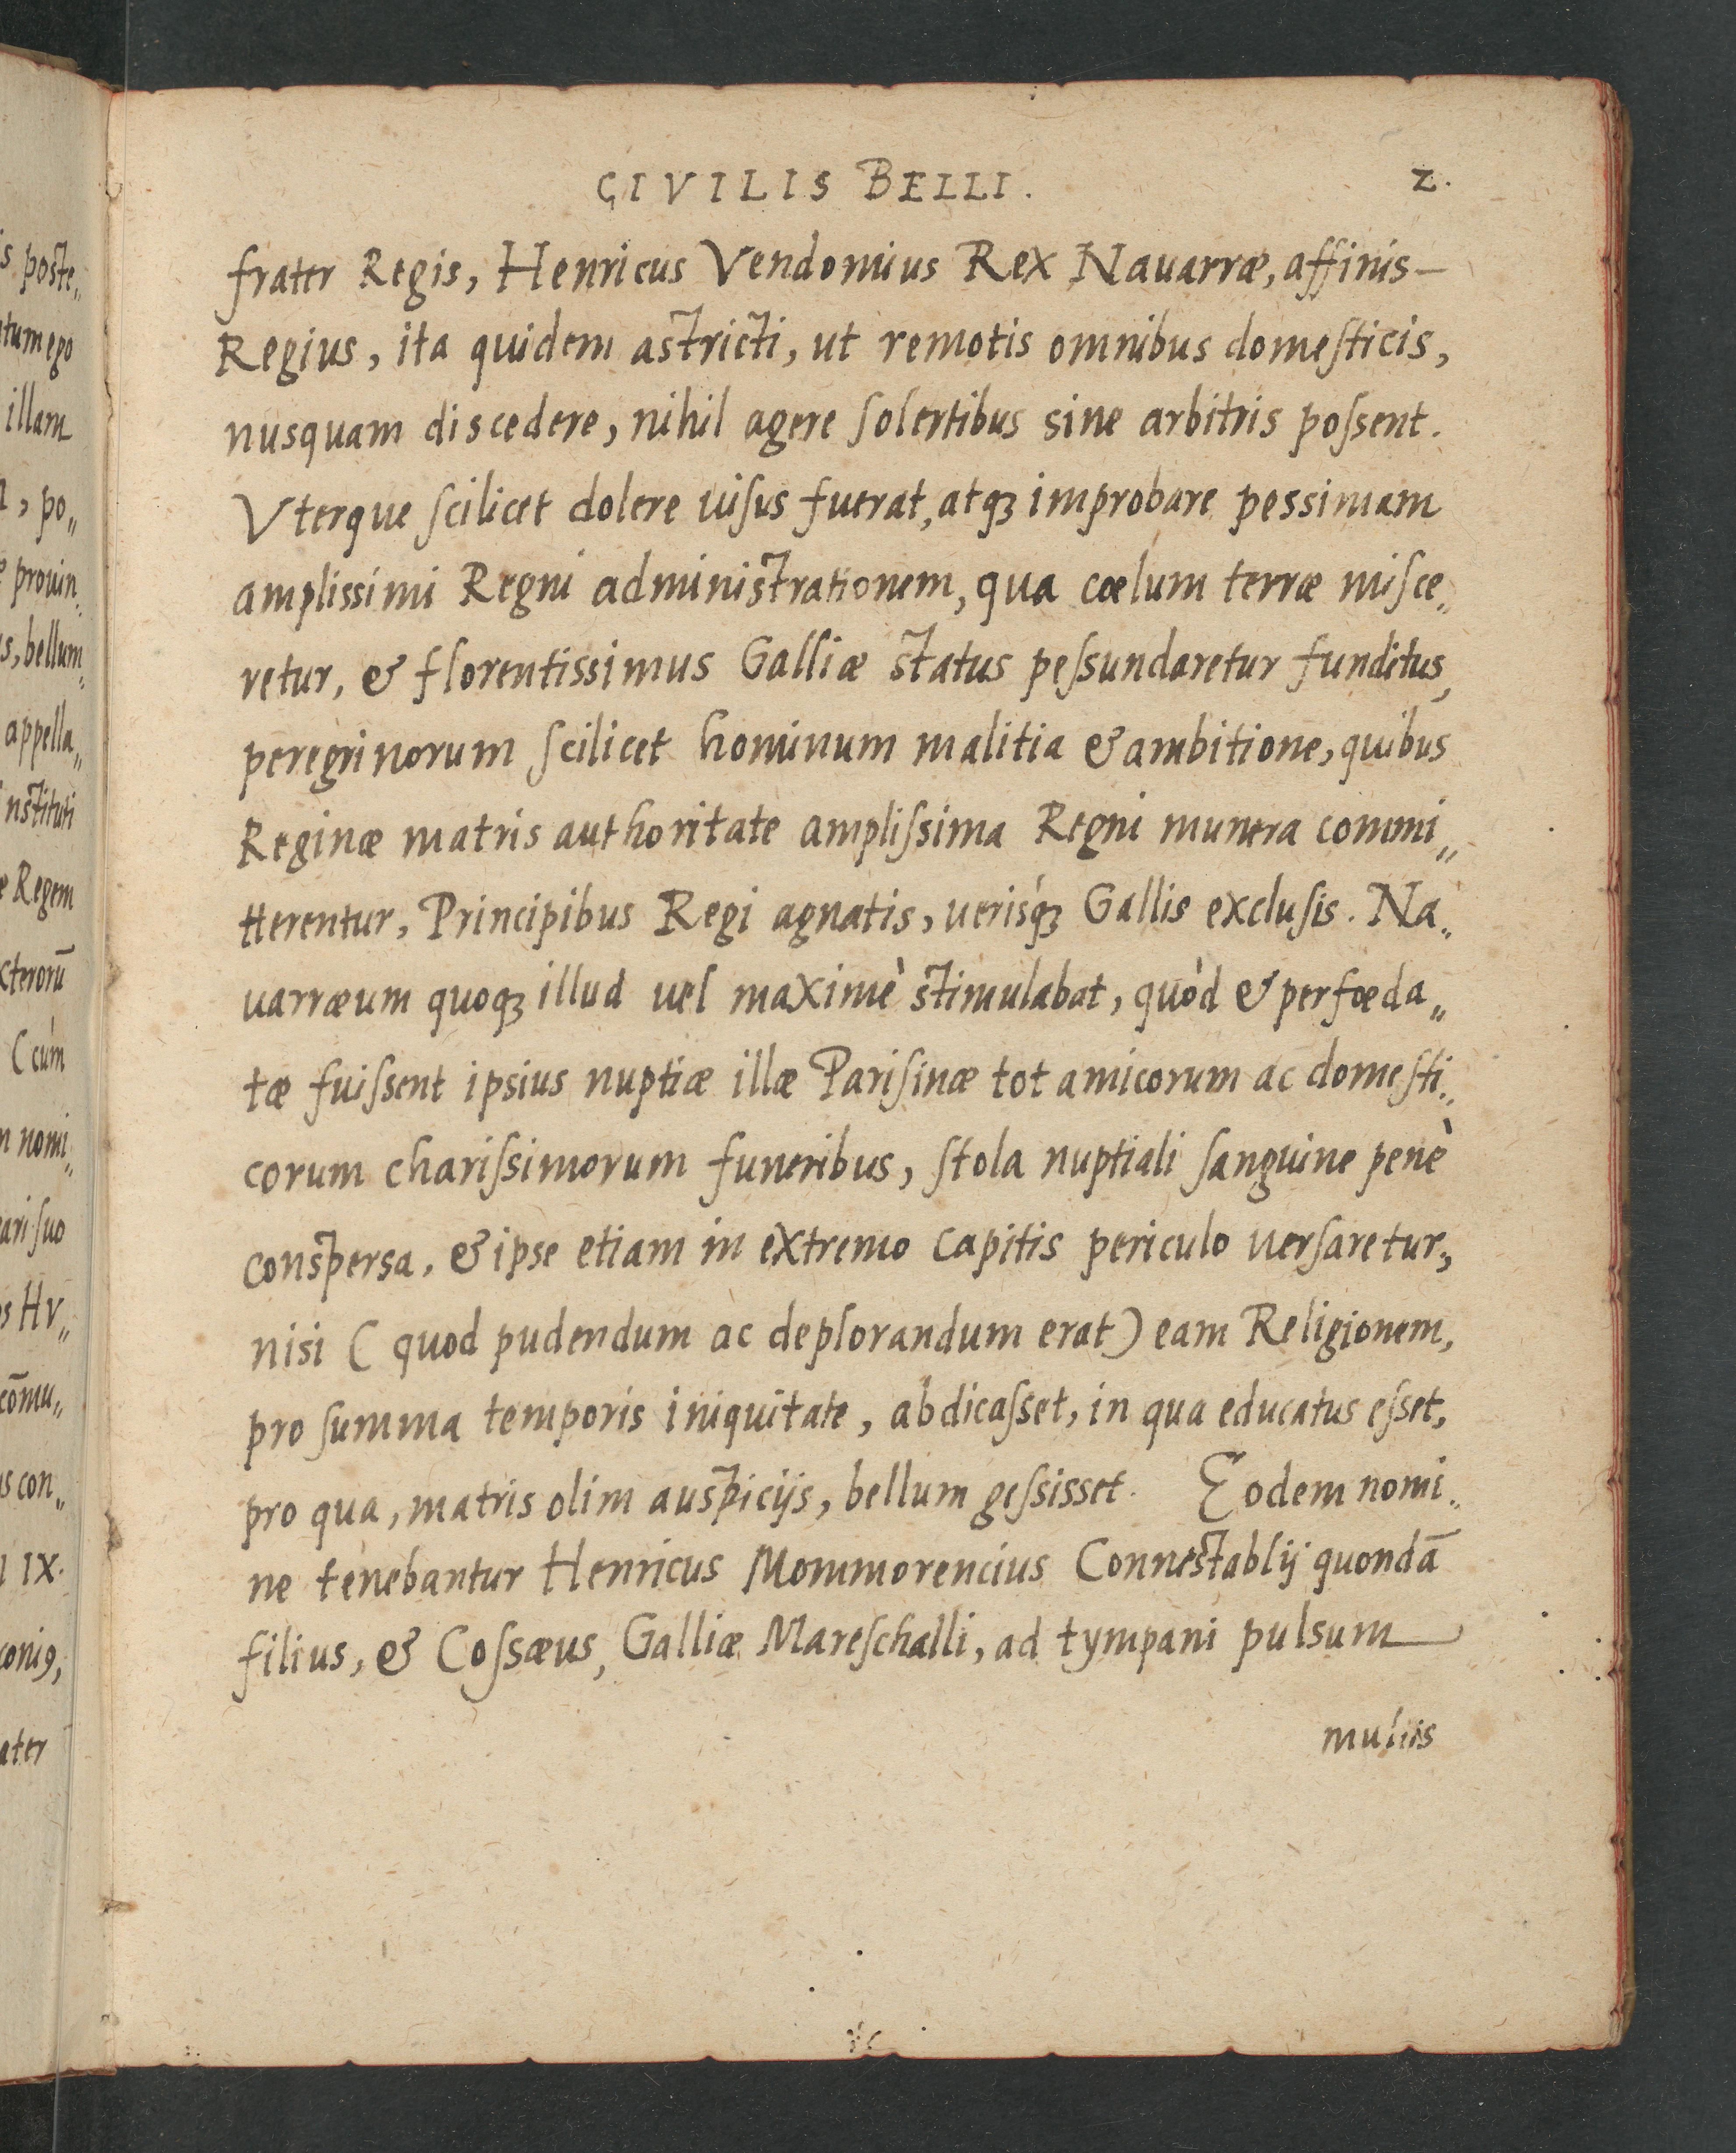 CIVILIS BELLI.
2.
frater Regis, Henricus Vendomius Rex Nauarræ, affinis—
Regius, ita quidem astricti, ut remotis omnibus domeſticis,
nusquam discedere, nihil agere ſolertibus sine arbitris poſsent.
Vterque ſcilicet dolere uiſus fuerat, atqꝫ improbare pessimam
amplissimi Regni administrationem, qua cœlum terræ miſce„
retur, & florentissimus Galliæ status peſsundaretur funditus,
peregrinorum ſcilicet hominum malitia & ambitione, quibus
Reginæ matris authoritate ampliſsima Regni munera commi„
tterentur, Principibus Regi agnatis, uerísqꝫ Gallis excluſis. Na„
uarræum quoqꝫ illud uel maximè stimulabat, quòd & perfœda„
tæ fuiſsent ipsius nuptiæ illæ Pariſinæ tot amicorum ac domeſti„
corum chariſsimorum funeribus, ſtola nuptiali ſanguine penè
conspersa, & ipse etiam in extremo capitis periculo uerſaretur,
nisi ( quod pudendum ac deplorandum erat) eam Religionem,
pro ſumma temporis iniquitate, abdicaſset, in qua educatus eſset,
pro qua, matris olim auspicijs, bellum geſsisset. Eodem nomi„
ne tenebantur Henricus Mommorencius Connestablij quondā
filius, & Coſsæus, Galliæ Mareſchalli, ad tympani pulsum
multis
is poste„
tum ego
illam
, po„
prouin„
s, bellum„
appella„
nstituti
Regem
xterorū
( cùm
nomi„
ari ſuo
s HV„
cōmu„
s con„
IX.
ater